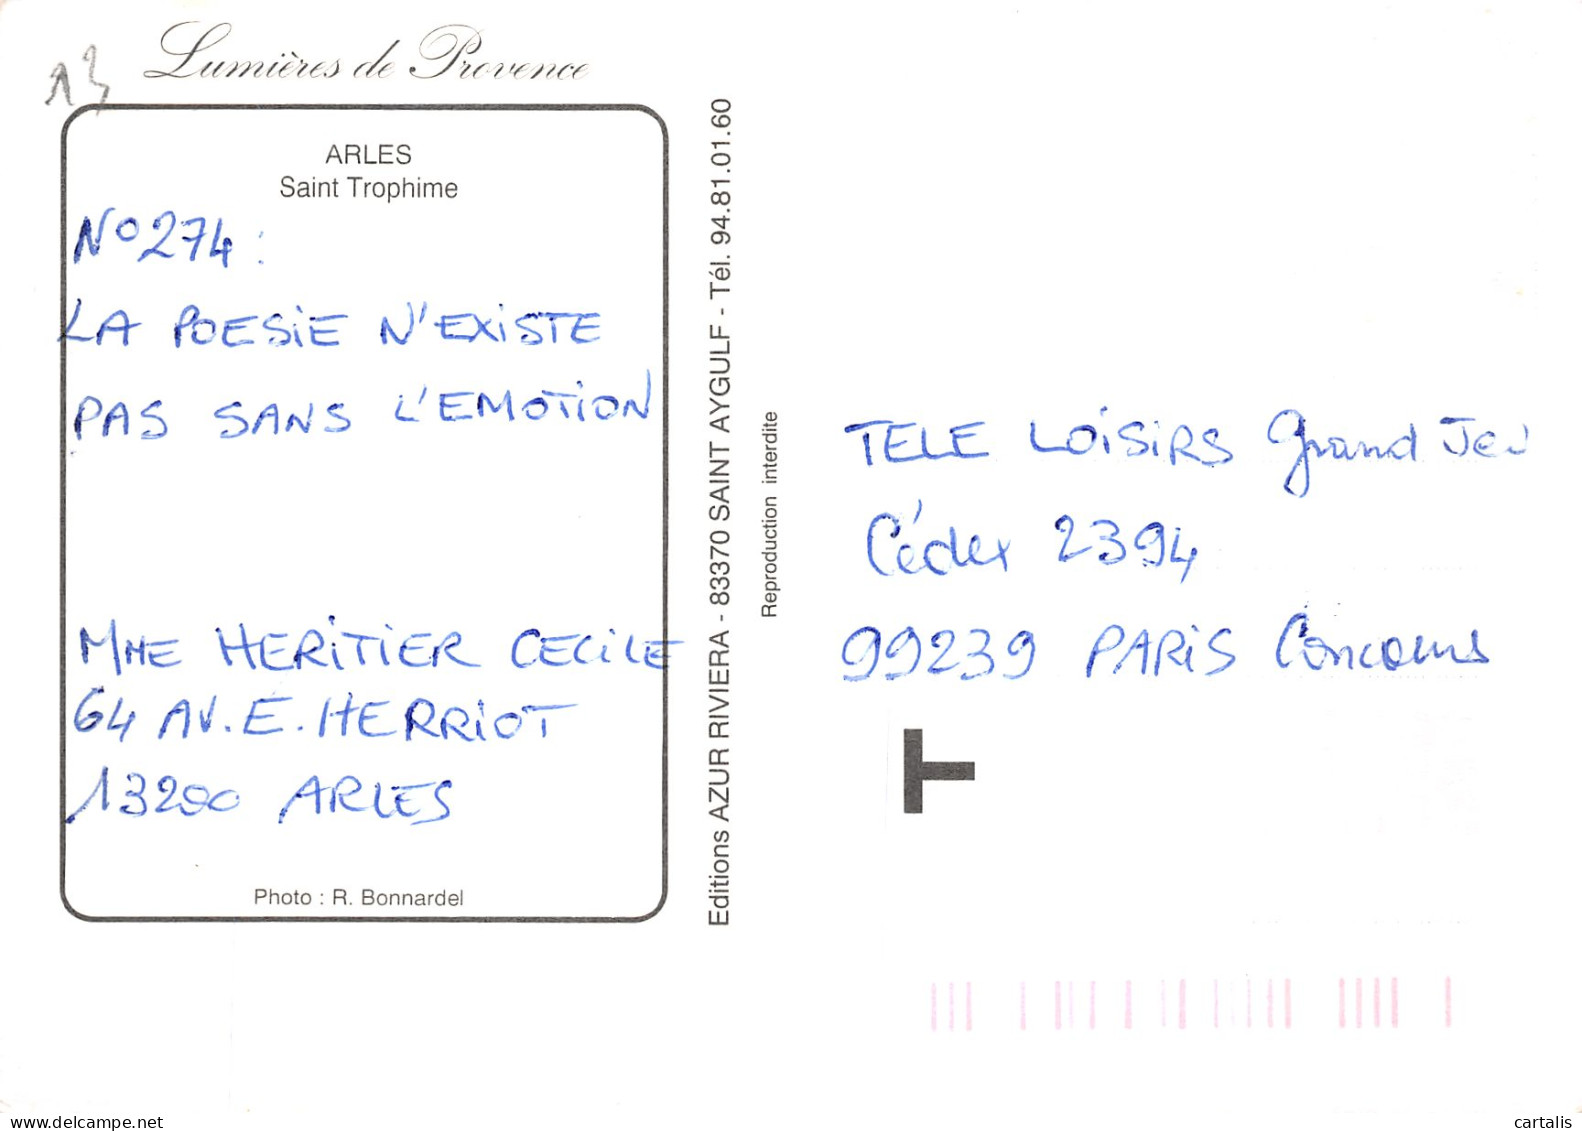 Lumières de Provence
13
ARLES
Saint Trophime
N° 274 :
LA POESIE N'EXISTE
PAS SANS L'EMOTION
MME HERITIER CECILE
64 AV. E. HERRIOT
13200 ARLES
Photo : R. Bonnardel
Editions AZUR RIVIERA - 83370 SAINT AYGULF - Tél. 94.81.01.60
Reproduction interdite
TELE LOISIRS Grand Jeu
Cédex 2394
99239 PARIS Concours
T
delcampe.net
cartalis